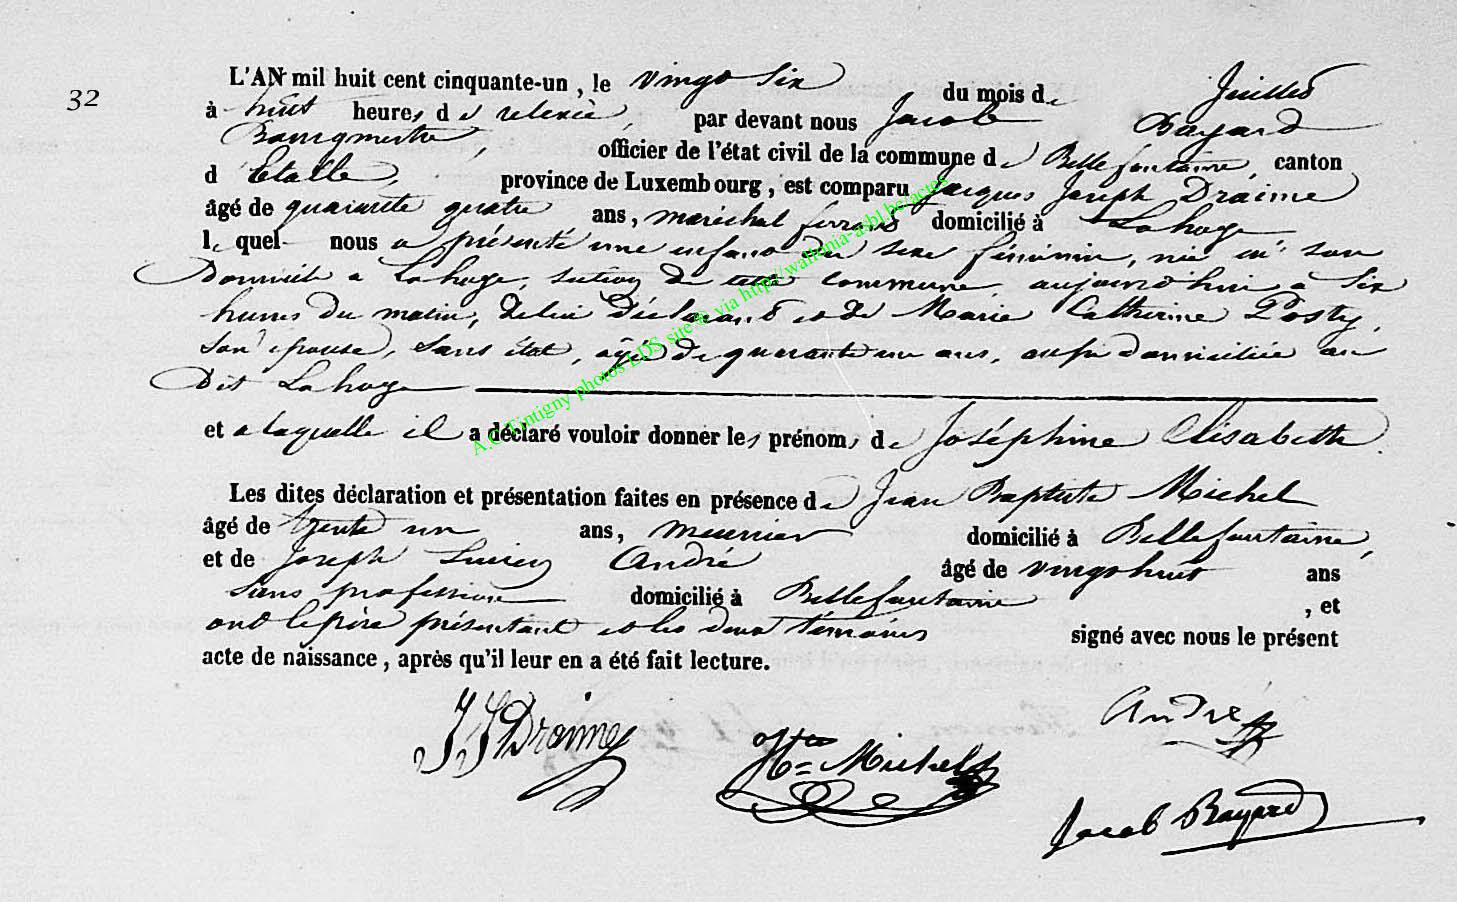 32
L'AN mil huit cent cinquante-un, le vingt six du mois de Juillet
à huit heures de relevée, par devant nous Jacob Bayard
Bourgmestre, officier de l'état civil de la commune de Bellefontaine, canton
d'Etalle, province de Luxembourg, est comparu Jacques Joseph Draime
âgé de quarante quatre ans, maréchal ferrant domicilié à Lahage
lequel nous a présenté une enfant du sexe féminin, née en son
domicile a Lahage, section de cette commune, aujourd'hui a six
heures du matin, de lui déclarant et de Marie Catherine Posty,
son épouse, sans état, âgée de quarante un ans, aussi domiciliée au
dit Lahage
et a laquelle il a déclaré vouloir donner les prénoms de Joséphine Elisabeth
Les dites déclaration et présentation faites en présence de Jean Baptiste Michel
âgé de trente un ans, meunier domicilié à Bellefontaine,
et de Joseph Lucien André âgé de vingt huit ans
sans profession domicilié à Bellefontaine, et
ont le père présentant et les deux témoins signé avec nous le présent
acte de naissance, après qu'il leur en a été fait lecture.
JJ Draime
Bte Michel
André
Jacob Bayard
A.C Tintigny photos LDS site © via http://wallonia-asbl.be/actes